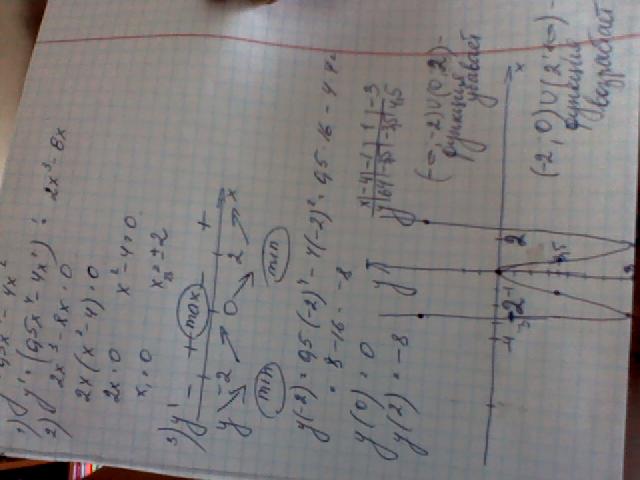 1) y = 0,5x⁴ - 4x²
2) y' = (0,5x⁴ - 4x²)' = 2x³ - 8x
2x³ - 8x = 0
2x(x² - 4) = 0
2x = 0 x² - 4 = 0
x₁ = 0 x₂₃ = ±2
3) y' - + max - +
y -2 0 2 x
min min
y(-2) = 0,5(-2)⁴ - 4(-2)² = 0,5·16 - 4·4 =
= 8 - 16 = -8
y(0) = 0
y(2) = -8
x -4 -1 1 -3
y 64 -3,5 -3,5 4,5
y
(-∞; -2)∪(0; 2) -
функция
убывает
-4 -3 -2 -1 2 x
(-2; 0)∪(2; +∞) -
функция
возрастает